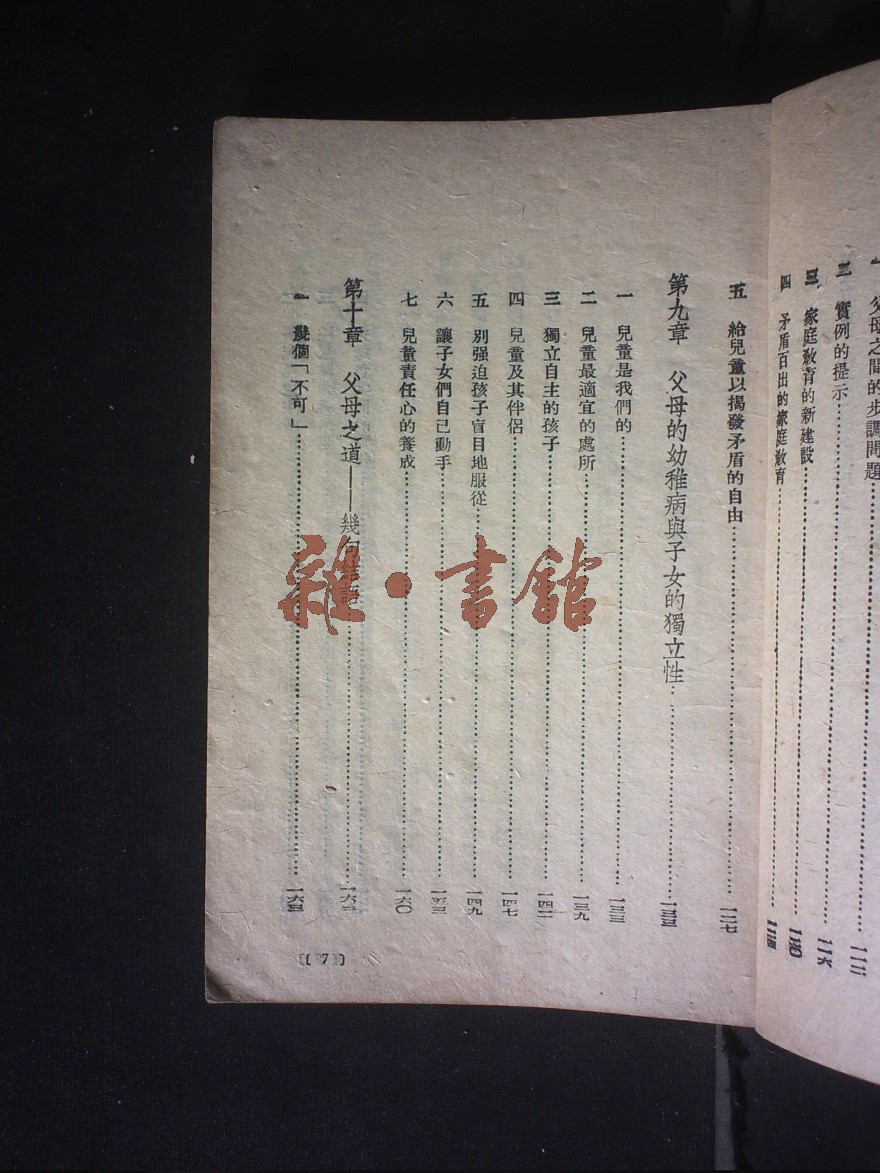 父母之間的步調問題……一一二
三 實例的提示……一一六
三 家庭教育的新建設……一二〇
四 矛盾百出的家庭教育……一二四
五 給兒童以揭發矛盾的自由……一二七
第九章 父母的幼稚病與子女的獨立性……一三三
一 兒童是我們的……一三三
二 兒童最適宜的處所……一三九
三 獨立自主的孩子……一四二
四 兒童及其伴侶……一四七
五 別强迫孩子盲目地服從……一四九
六 讓子女們自己動手……一五三
七 兒童責任心的養成……一六〇
第十章 父母之道——幾句結語……一六三
一 幾個「不可」……一六三
(7)
雜·書館